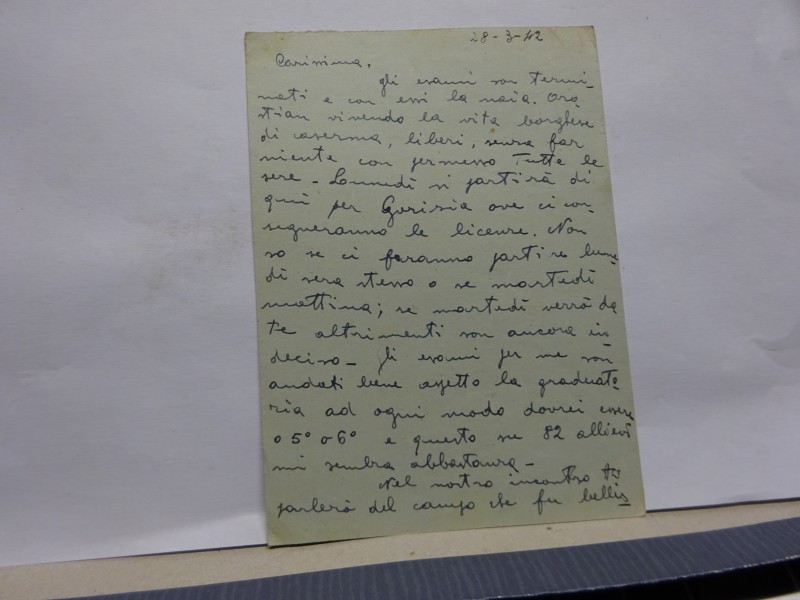 28-3-42
Carissima,
gli esami son termi-
nati e con essi la naia. Ora
stian vivendo la vita borghese
di caserma, liberi, senza far
niente con permesso tutte le
sere - Lunedì si partirà di
quì per Gorizia ove ci con-
segneranno le licenze. Non
so se ci faranno partire lune-
dì sera stesso o se martedì
mattina; se martedì verrò da
te altrimenti son ancora in
deciso - gli esami per me son
andati bene aspetto la graduato
ria ad ogni modo dovrei essere
o 5° o 6° e questo su 82 allievi
mi sembra abbastanza -
Nel nostro incontro
parlerò del campo che fu bellis